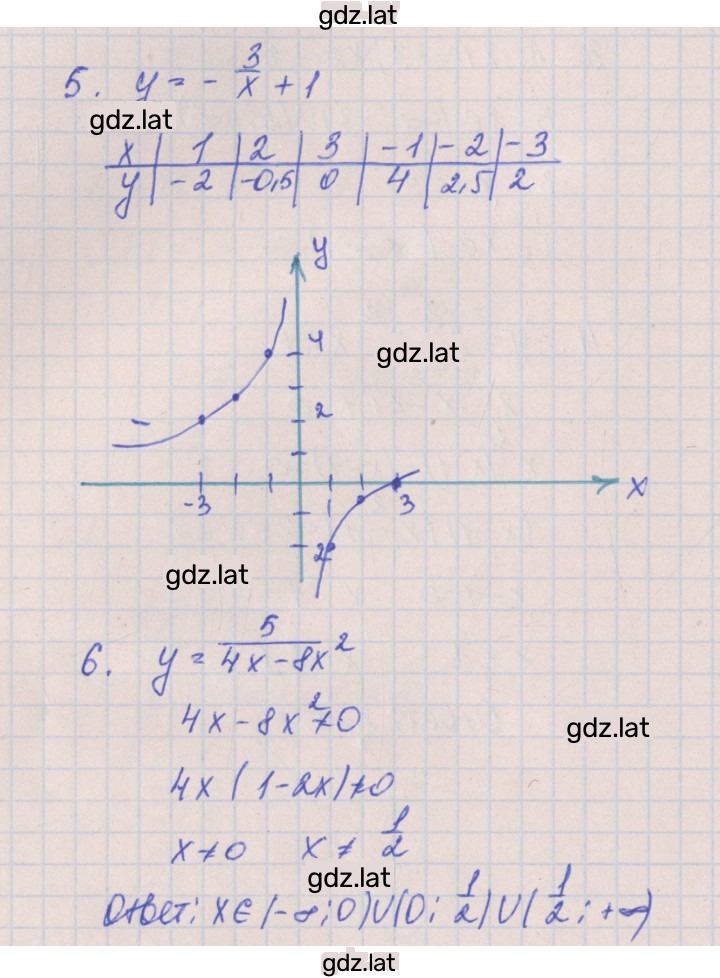 gdz.lat
5. y = - 3/x + 1
gdz.lat
x | 1 | 2 | 3 | -1 | -2 | -3
y | -2 | -0,5 | 0 | 4 | 2,5 | 2
y
4
gdz.lat
2
x
-3 1 3
2
gdz.lat
6. y = 5/(4x - 8x²)
4x - 8x² ≠ 0
gdz.lat
4x (1 - 2x) ≠ 0
x ≠ 0 x ≠ 1/2
gdz.lat
Ответ: x ∈ (-∞; 0) ∪ (0; 1/2) ∪ (1/2; +∞)
gdz.lat